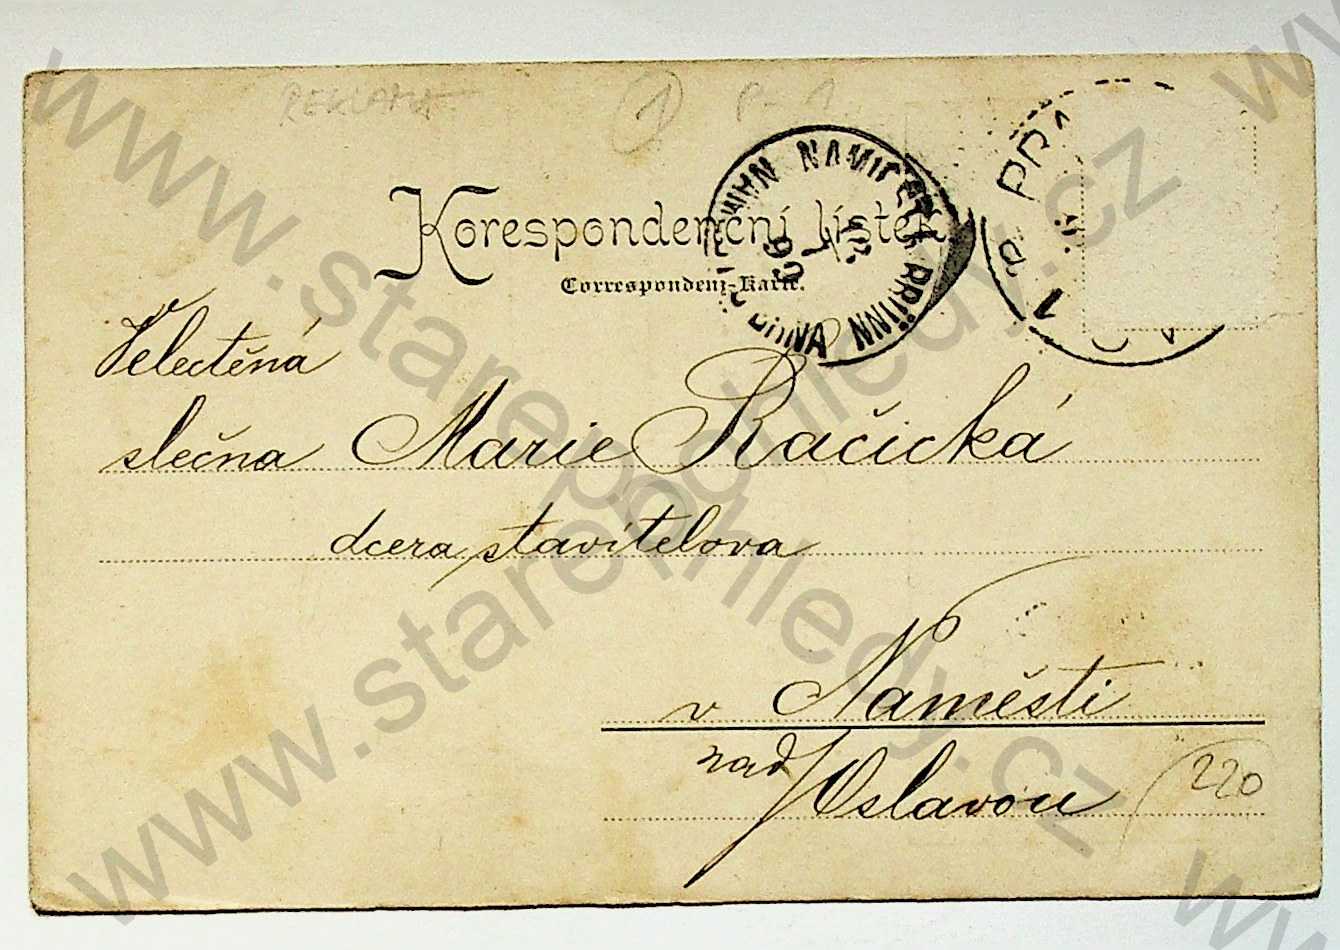 REKLAMA 1
Korespondenční lístek
Correspondenz-Karte.
NAMIEST BRÜNN
BRNA
99
PRA
1
Velectěná
slečna Marie Račická
dcera stavitelova
v Naměsti
nad Oslavou
220
www.starepohledy.cz
www.starepohledy.cz